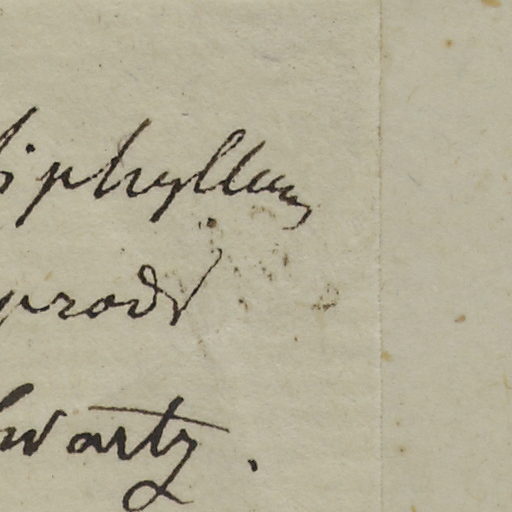 iphyllum
prodr
wartz.